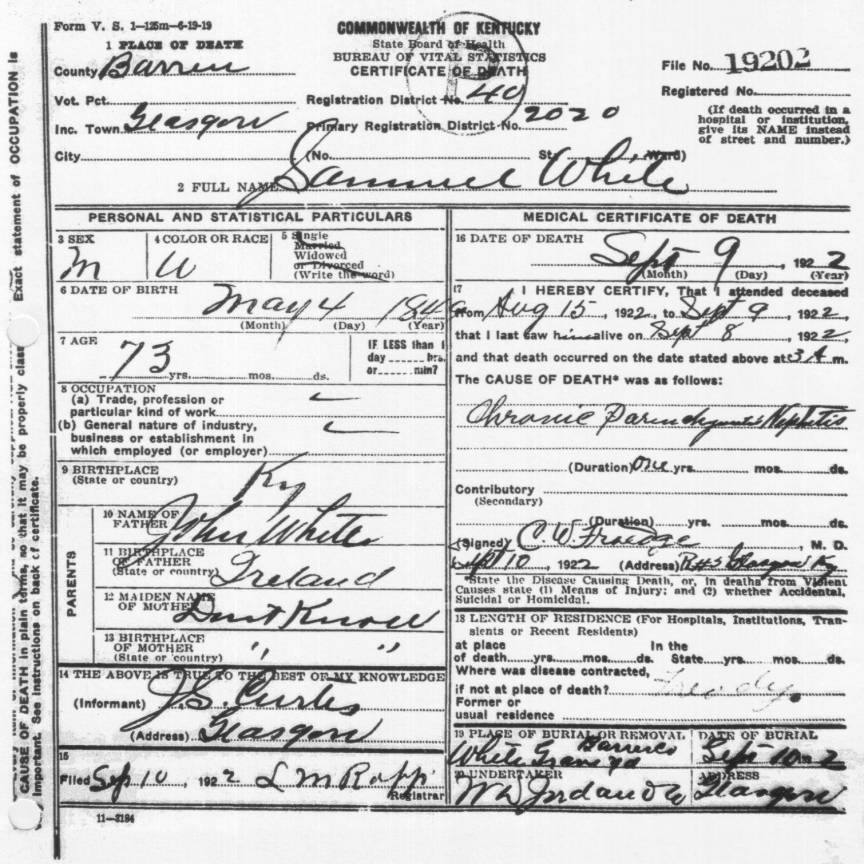 Form V. S. 1—125m—6-19-19
COMMONWEALTH OF KENTUCKY
State Board of Health
BUREAU OF VITAL STATISTICS
CERTIFICATE OF DEATH
1 PLACE OF DEATH
County Barren
File No. 19202
Vot. Pct.
Registration District No. 40
Registered No.
Inc. Town Glasgow
Primary Registration District No. 2020
(If death occurred in a hospital or institution, give its NAME instead of street and number.)
City (No. St. Ward)
2 FULL NAME Samuel White
PERSONAL AND STATISTICAL PARTICULARS
3 SEX M
4 COLOR OR RACE W
5 Single
Married
Widowed
or Divorced
(Write the word)
6 DATE OF BIRTH May 4 1849
(Month) (Day) (Year)
7 AGE 73 yrs. mos. ds.
IF LESS than 1
day hrs.
or min?
8 OCCUPATION
(a) Trade, profession or
particular kind of work
(b) General nature of industry,
business or establishment in
which employed (or employer)
9 BIRTHPLACE
(State or country) Ky
PARENTS
10 NAME OF
FATHER John White
11 BIRTHPLACE
OF FATHER
(State or country) Ireland
12 MAIDEN NAME
OF MOTHER Dont Know
13 BIRTHPLACE
OF MOTHER
(State or country) " "
14 THE ABOVE IS TRUE TO THE BEST OF MY KNOWLEDGE
(Informant) J. S. Curtis
(Address) Glasgow
15
Filed Sep 10, 1922 L M Rapp
Registrar
11—3184
MEDICAL CERTIFICATE OF DEATH
16 DATE OF DEATH
Sept 9, 1922
(Month) (Day) (Year)
17 I HEREBY CERTIFY, That I attended deceased
from Aug 15, 1922, to Sept 9, 1922,
that I last saw him alive on Sept 8, 1922,
and that death occurred on the date stated above at 3 A m.
The CAUSE OF DEATH* was as follows:
Chronic Nephritis
(Duration) one yrs. mos. ds.
Contributory
(Secondary)
(Duration) yrs. mos. ds.
(Signed) C. W. Froedge, M. D.
Sept 10, 1922 (Address) Glasgow Ky
*State the Disease Causing Death, or, in deaths from Violent
Causes state (1) Means of Injury; and (2) whether Accidental,
Suicidal or Homicidal.
18 LENGTH OF RESIDENCE (For Hospitals, Institutions, Tran-
sients or Recent Residents)
at place In the
of death yrs. mos. ds. State yrs. mos. ds.
Where was disease contracted,
if not at place of death?
Former or
usual residence
19 PLACE OF BURIAL OR REMOVAL
Barren Co
White Grave yd
DATE OF BURIAL
Sept 10 22
20 UNDERTAKER
ADDRESS
Glasgow
Exact statement of OCCUPATION is
CAUSE OF DEATH in plain terms, so that it may be properly class
important. See instructions on back of certificate.